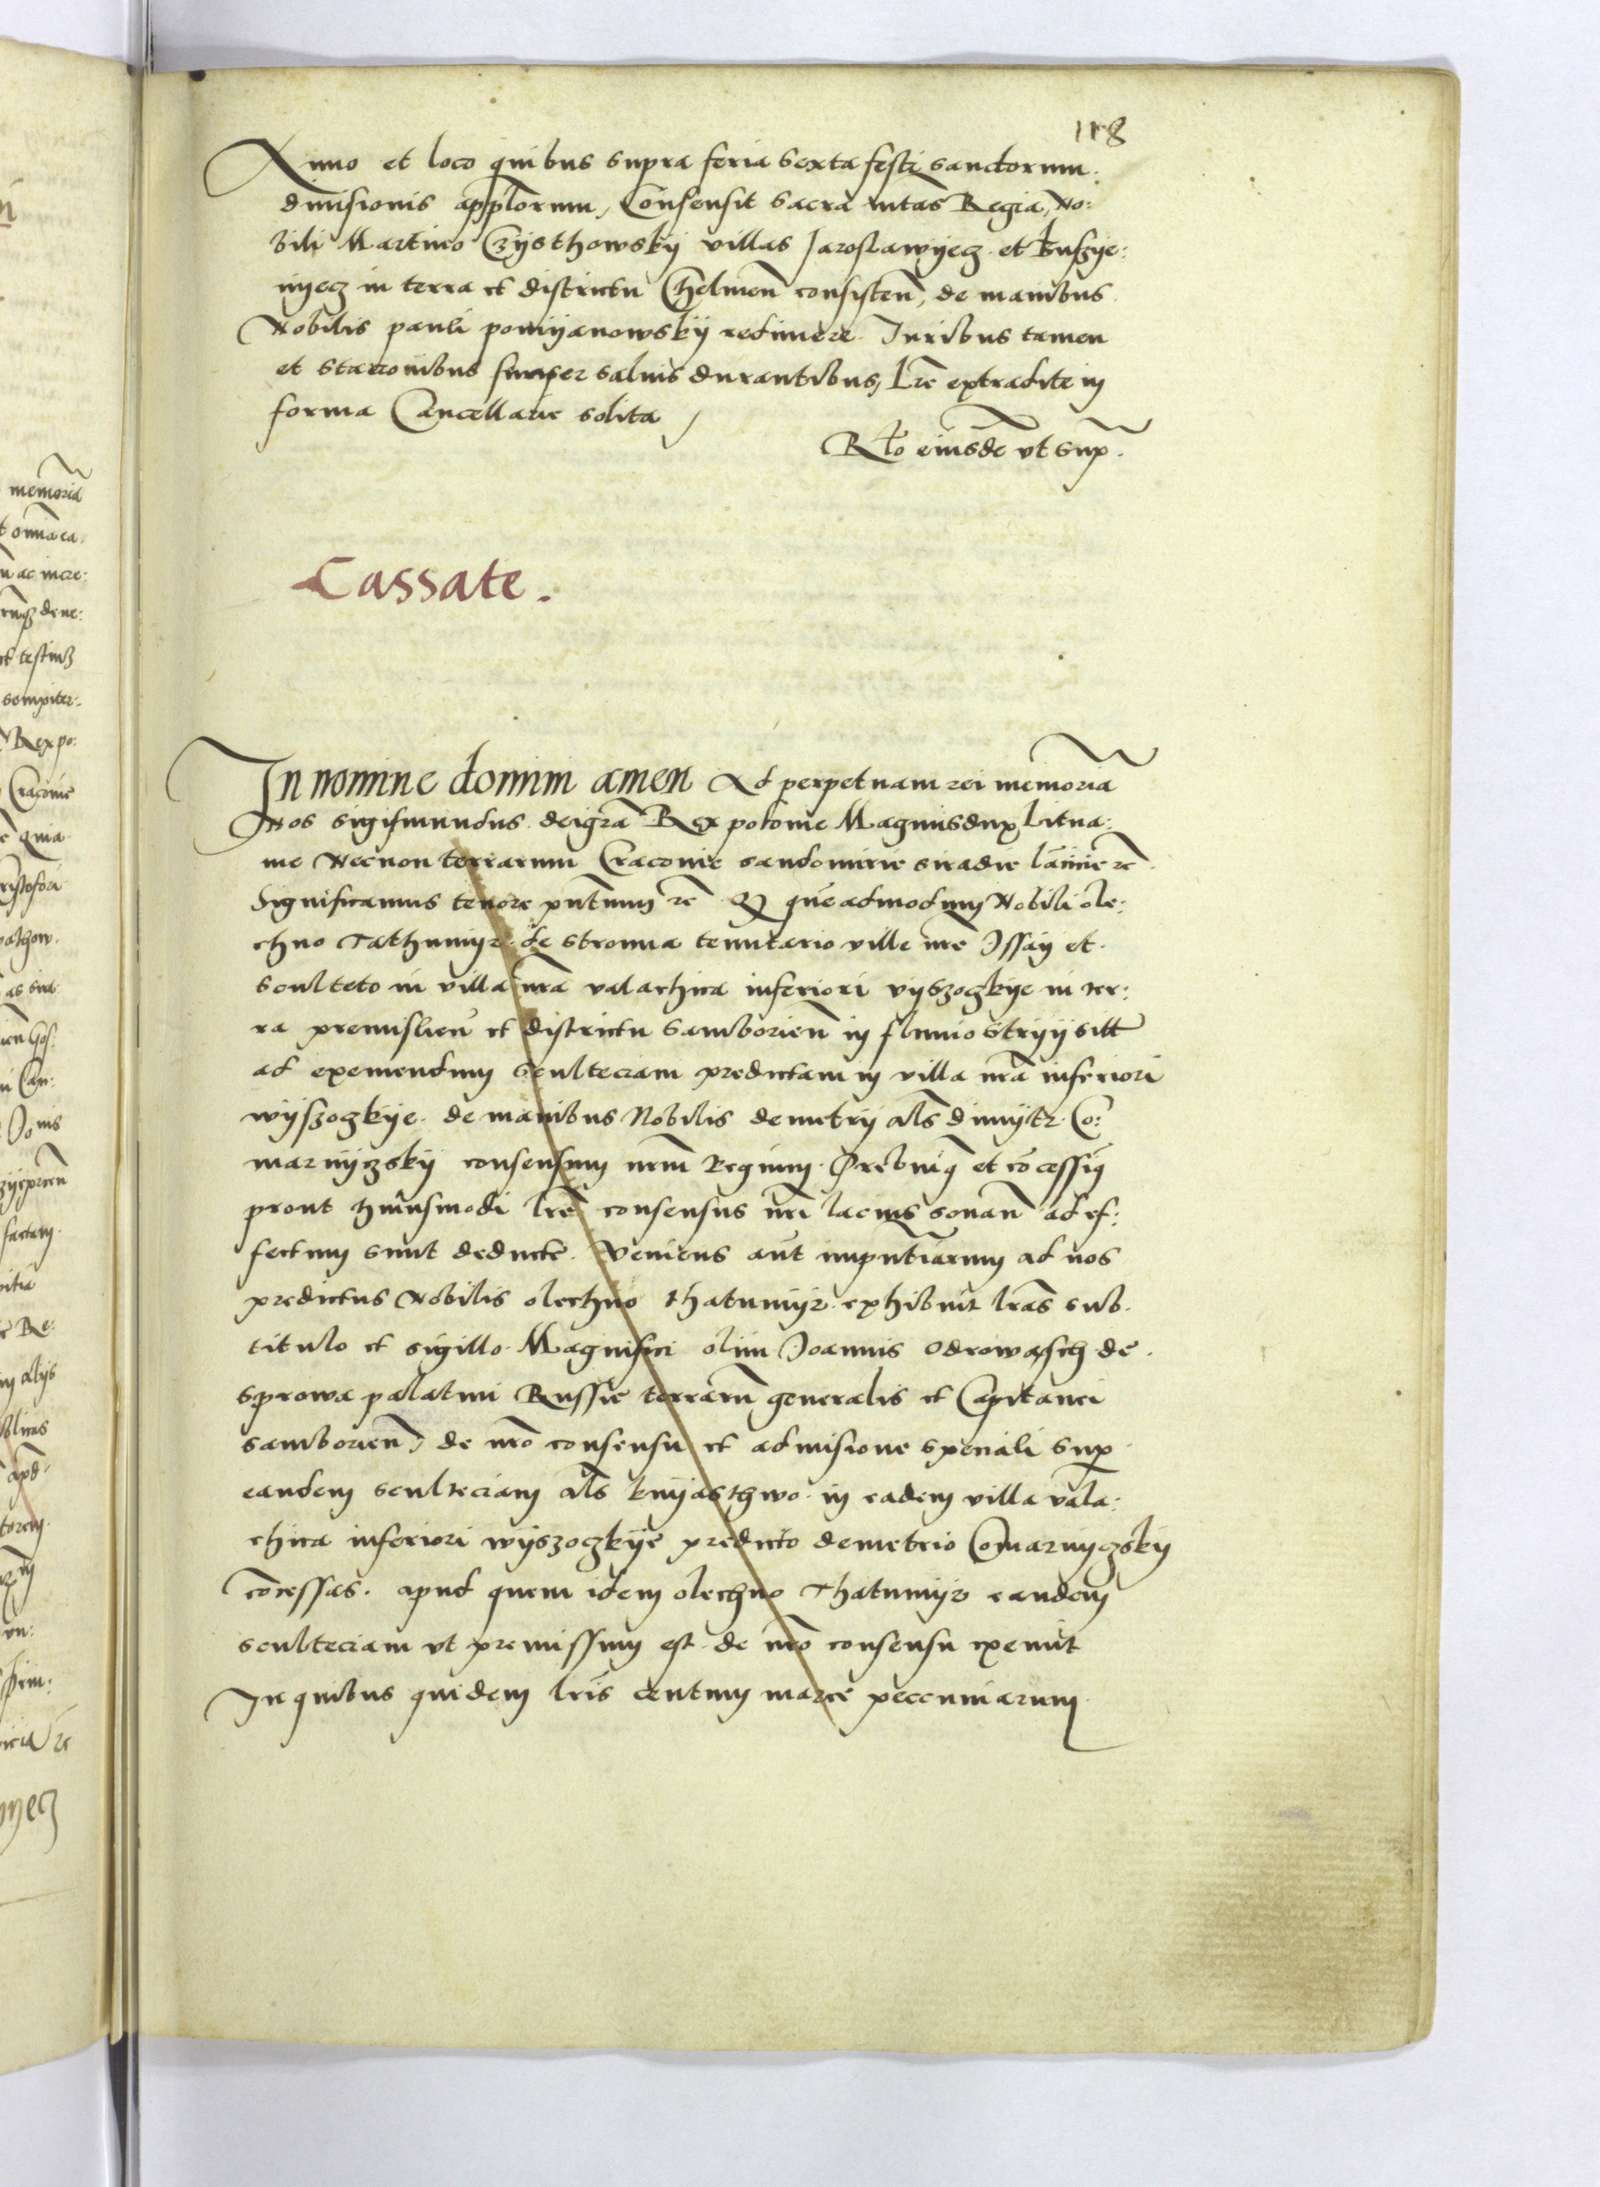 118
Anno et loco quibus supra feria sexta festi sanctorum
diuisionis applorum, Consensit sacra mtas Regia, No:
bili Martino Czysthowskij villas Jaroslawyecz et kuszye:
nyecz in terra et districtu Chelmen consisten, de manibus
Nobilis pauli pomyanowskij redimere. Juribus tamen
et stacionibus semper saluis durantibus, Lre extradite in
forma Cancellarie solita,
Rlo eiusde vt sup.
Cassate.
In nomine domini amen Ad perpetuam rei memoria
Nos sigismundus deigra Rex polonie Magnusdux Litua:
nie Necnon terrarum Cracouie sandomirie siradie lancicie rc
Significamus tenore pntium rc Qz queadmodum Nobili ole:
chno Tathumyr de stronna tenutario ville nre Issay et
sculteto in villa nra valachica inferiori vyszoczkye in ter:
ra premislien et districtu samborien in fluuio stryy sitt
ad exemendum sculteciam predictam in villa nra inferiori
wyszoczkye de manibus Nobilis demetrij als dimytr Co:
marnyczskij consensum nrm Regium prebuimq et cocessiq
prout huiusmodi lre consensus nri lacius sonan ad ef:
fectum sunt deducte. Veniens aut impntiarum ad nos
predictus Nobilis olechno thatumyr exhibuit lras sub
titulo et sigillo Magnifici olim Joannis odrowasch de
sprowa palatini Russie terrarum generalis et Capitanei
samborien, de nro consensu et admisione speciali sup
eandem sculteciam als knyasthwo in eadem villa vala:
chica inferiori wyszoczkye predicto demetrio Comarnyczskij
cocessas. apud quem idem olechno Thatumyr eandem
sculteciam vt premissum est de nro consensu exemit
In quibus quidem lris centum marce peccuniarum